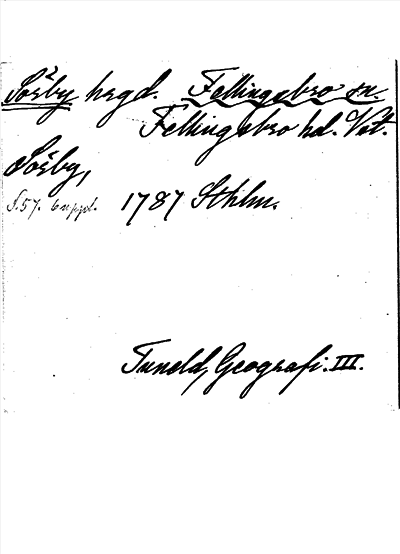 Sörby hrgd. Fellingsbro sn.
Fellingsbro hd. Vstm.
Sörby,
S.57. 6 uppl. 1787 Sthlm.
Tuneld, Geografi. III.